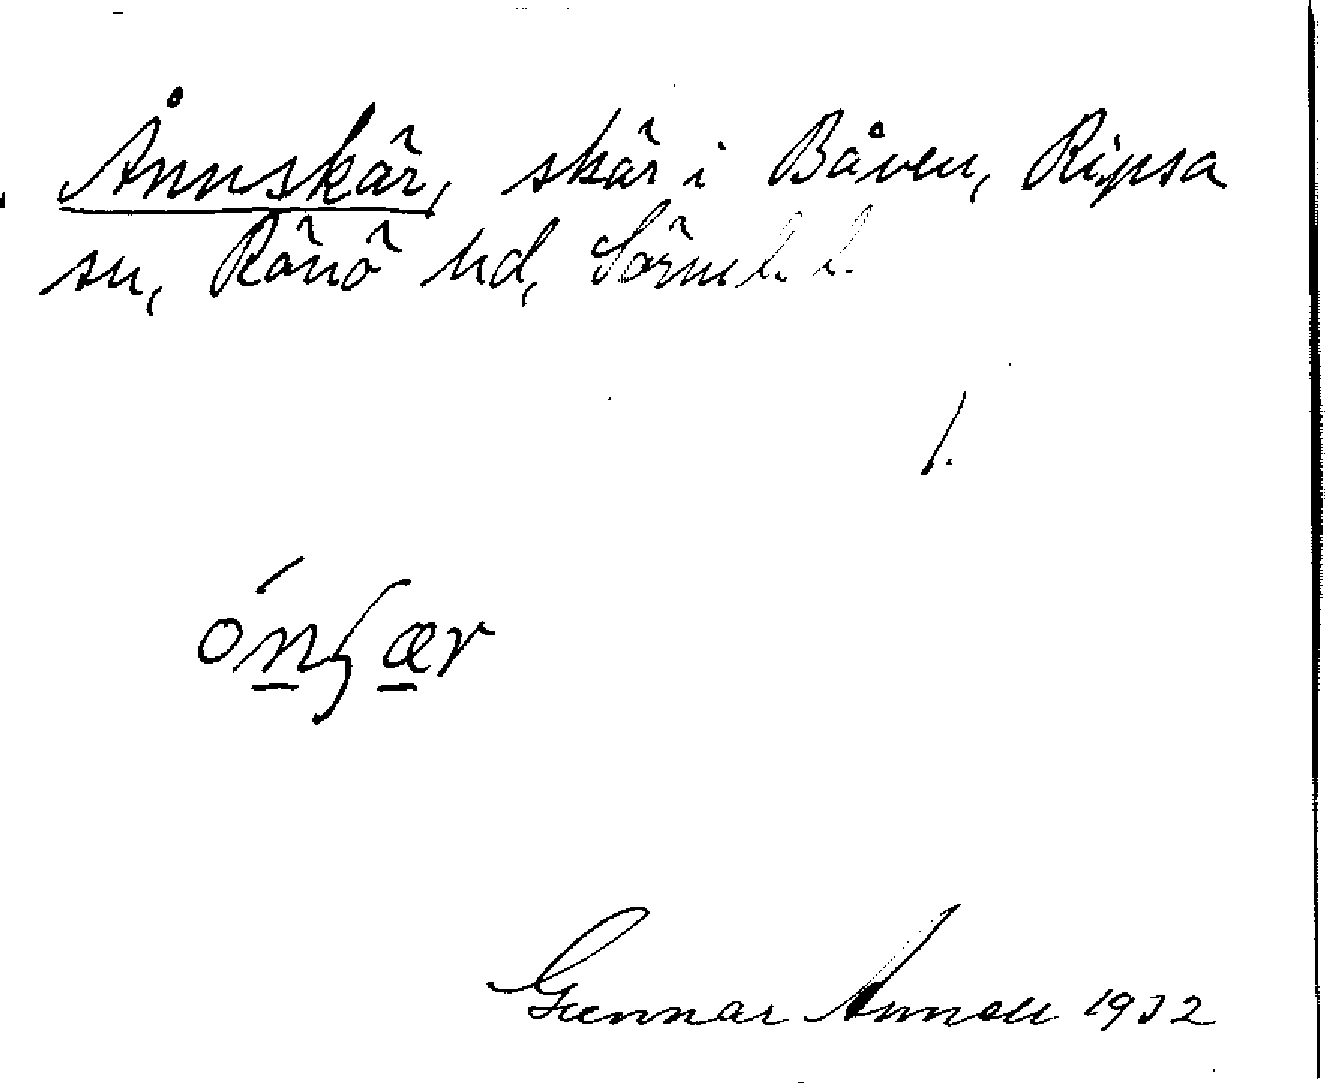 Ånnskär, skär i Båven, Ripsa
sn, Rönö hd, Sörml. l.
1.
Gunnar Annell 1932